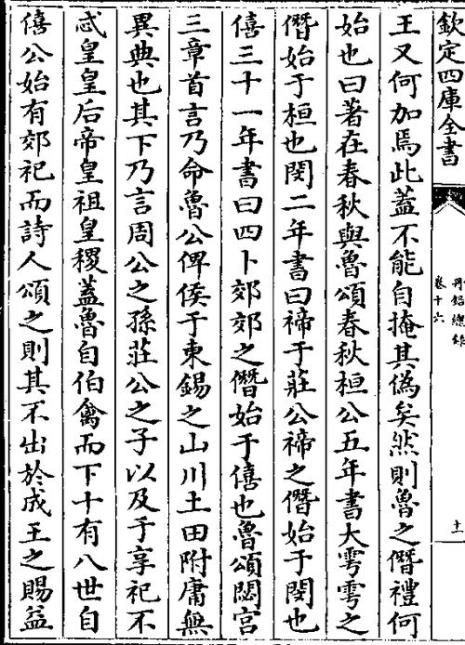 欽定四庫全書
丹鉛總錄
卷十六
十一
王又何加焉此葢不能自掩其偽矣然則魯之僭禮何
始也曰著在春秋與魯頌春秋桓公五年書大雩雩之
僭始于桓也閔二年書曰禘于莊公禘之僭始于閔也
僖三十一年書曰四卜郊郊之僭始于僖也魯頌閟宫
三章首言乃命魯公俾侯于東錫之山川土田附庸無
異典也其下乃言周公之孫莊公之子以及于享祀不
忒皇皇后帝皇祖皇稷葢魯自伯禽而下十有八世自
僖公始有郊祀而詩人頌之則其不出於成王之賜益